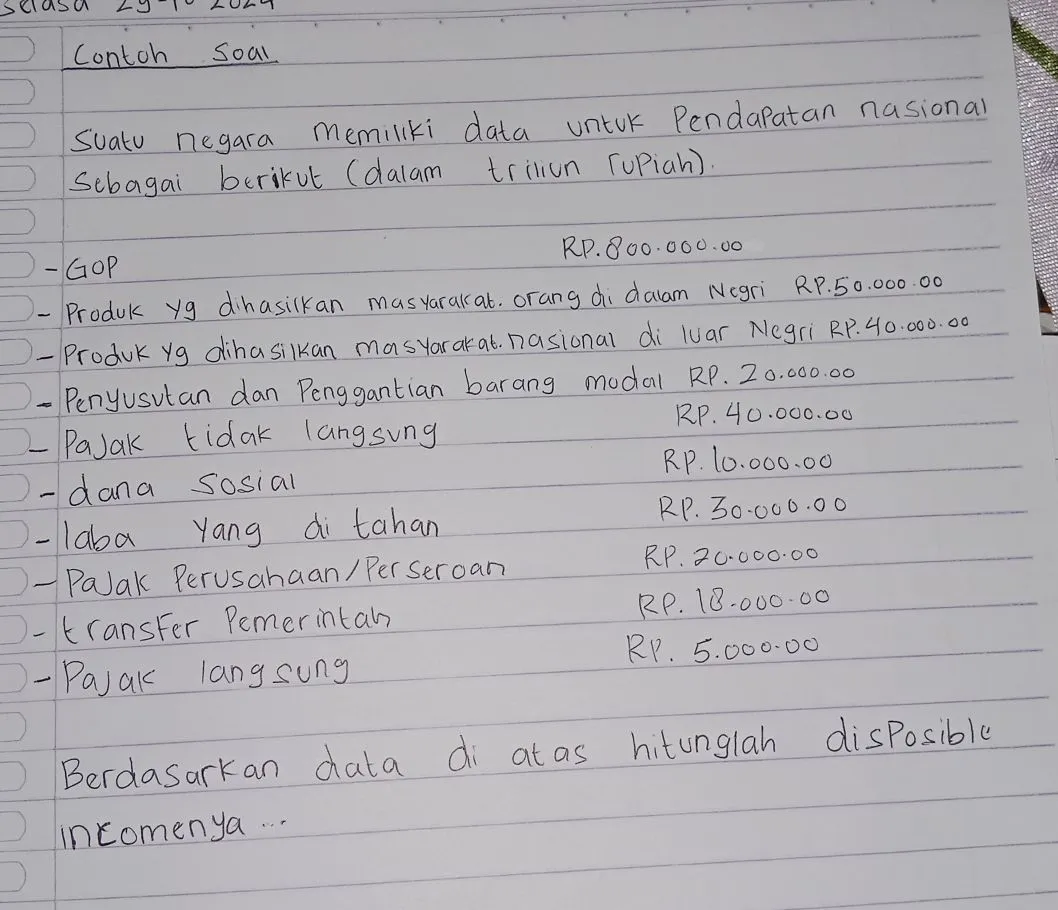 Selasa 29-10 2024
Contoh Soal
Suatu negara memiliki data untuk Pendapatan nasional
Sebagai berikut (dalam triliun rupiah).
- GDP RP. 800.000.00
- Produk yg dihasilkan masyarakat. orang di dalam Negri RP.50.000.00
- Produk yg dihasilkan masyarakat. nasional di luar Negri RP.40.000.00
- Penyusutan dan Penggantian barang modal RP. 20.000.00
- Pajak tidak langsung RP. 40.000.00
- dana Sosial RP. 10.000.00
- laba yang di tahan RP. 30.000.00
- Pajak Perusahaan/Perseroan RP. 20.000.00
- transfer Pemerintah RP. 18.000.00
- Pajak langsung RP. 5.000.00
Berdasarkan data di atas hitunglah disPosible
incomenya ...